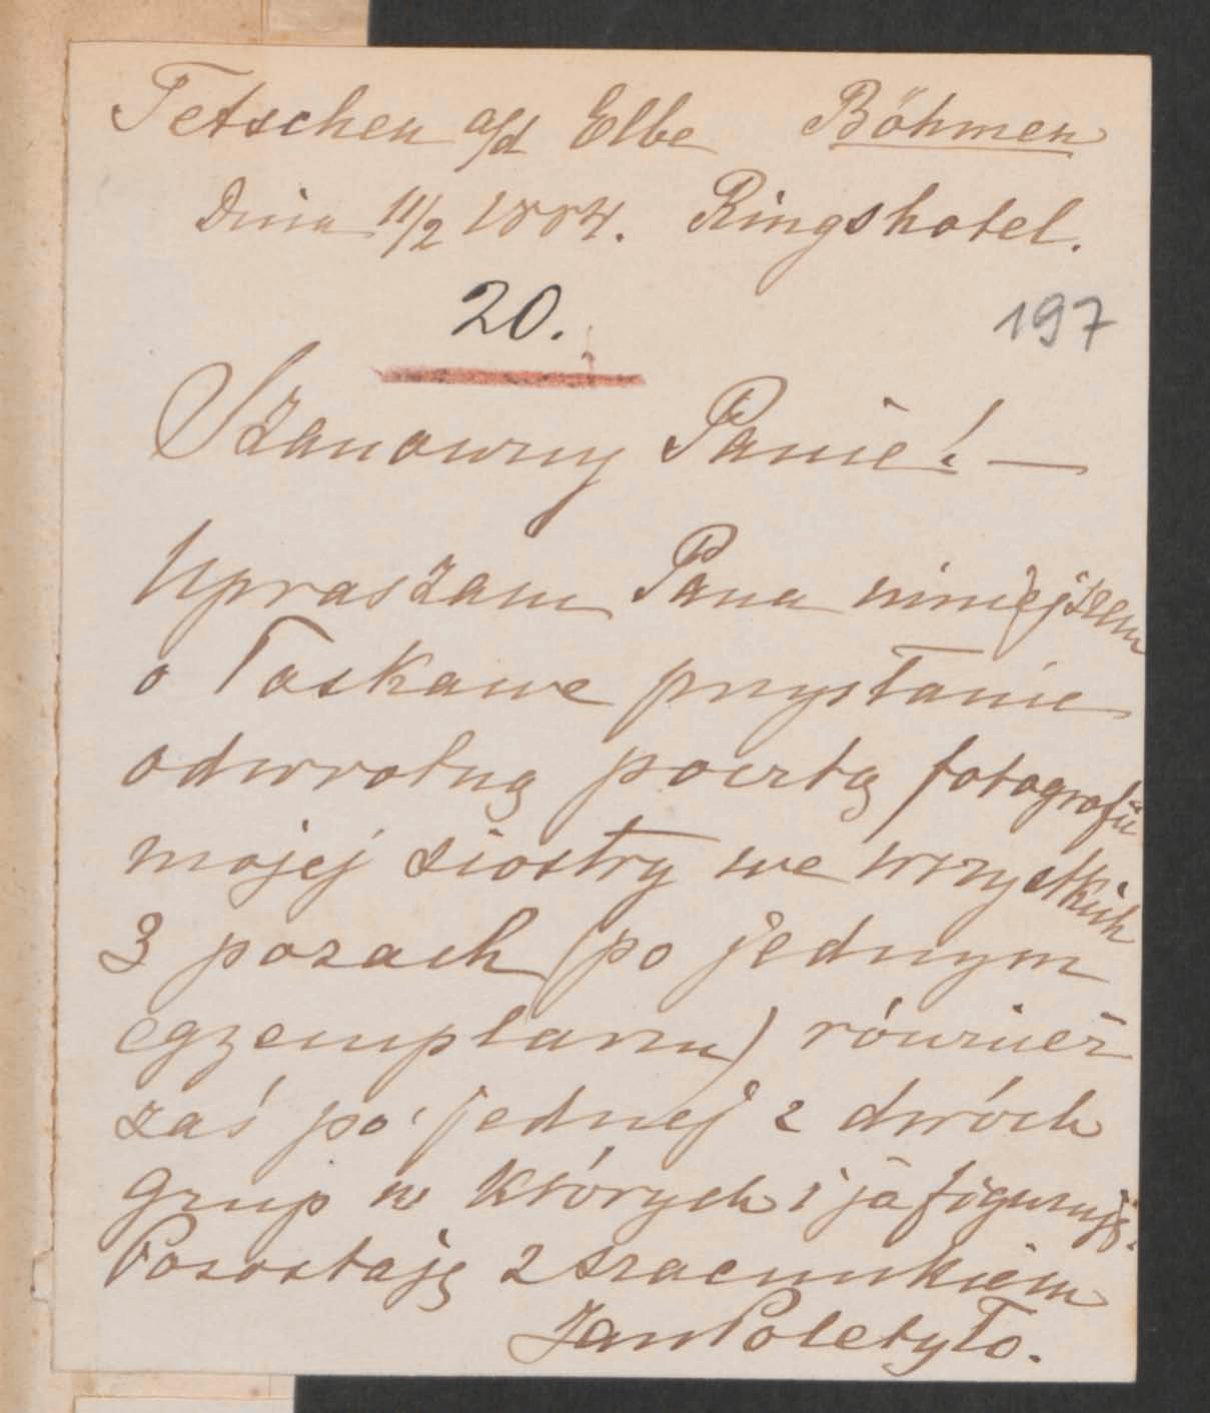 Tetschen a/d Elbe Böhmen
Dnia 11/2 1884. Ringshotel.
20.
197
Szanowny Panie! —
Upraszam Pana niniejszem
o łaskawe przysłanie
odwrotną pocztą fotografii
mojej siostry we wszystkich
3 pozach (po jednym
egzemplarzu) również
zaś po jednej z dwóch
grup w których i ja figuruję.
Pozostaję z szacunkiem
Jan Poletyło.